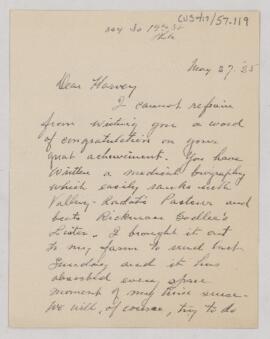 CUS417/57.119
So 19th St
Phila
May 27. '25
Dear Harvey
I cannot refrain
from writing you a word
of congratulation on your
great achievement. You have
written a medical biography
which easily ranks with
Vallery-Radots Pasteur and
beats Rickman Godlee's
Lister. I brought it out
to my farm to read last
Sunday and it has
absorbed every spare
moment of my time since.
We will, of course, try to do